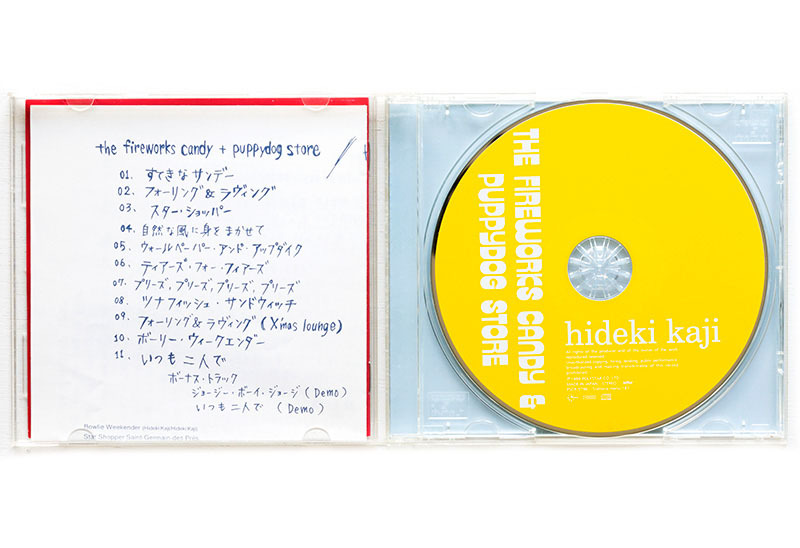 the fireworks candy + puppydog store
01. すてきなサンデー
02. フォーリング&ラヴィング
03. スター・ショッパー
04. 自然な風に身をまかせて
05. ウォールペーパー・アンド・アップダイク
06. ティアーズ・フォー・フィアーズ
07. プリーズ, プリーズ, プリーズ, プリーズ
08. ツナフィッシュ・サンドウィッチ
09. フォーリング&ラヴィング (Xmas lounge)
10. ボーリー・ウィークエンダー
11. いつも二人で
ボーナス・トラック
ジョージー・ボーイ・ジョージ (Demo)
いつも二人で (Demo)
Bowlie Weekender (Hideki Kaji/Hideki Kaji)
Star Shopper Saint Germain des Pres
THE FIREWORKS CANDY &
PUPPYDOG STORE
hideki kaji